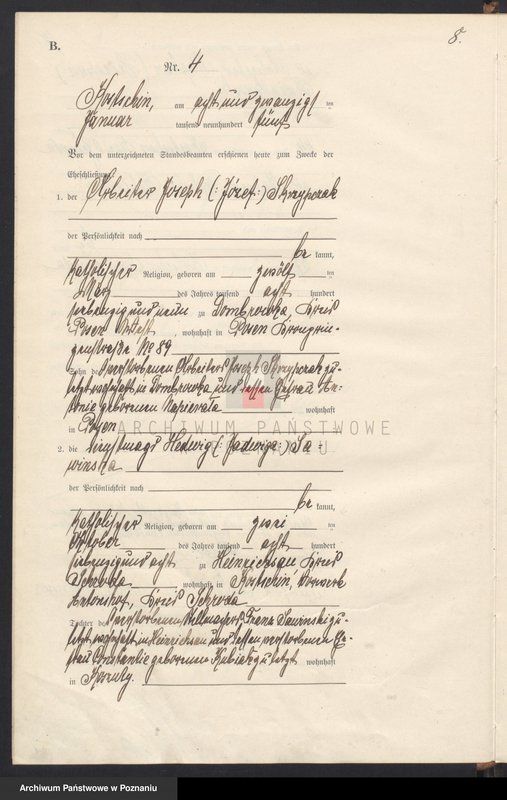 8.
B.
Nr. 4
Kostschin, am acht und zwanzigsten
Januar tausend neunhundert fünf
Vor dem unterzeichneten Standesbeamten erschienen heute zum Zwecke der
Eheschließung:
1. der Arbeiter Joseph (: Józef :) Skrzypczak
der Persönlichkeit nach
be kannt,
katholischer Religion, geboren am zwölf ten
März des Jahres tausend acht hundert
siebenzig und neun zu Dombrowka, Kreis
Posen West, wohnhaft in Posen
straße No 89
Sohn des verstorbenen Arbeiters Joseph Skrzypczak zu-
letzt wohnhaft in Dombrowka und dessen Ehefrau An-
tonie geborenen wohnhaft
in Posen
ARCHIWUM PAŃSTWOWE
W POZNANIU
2. die Dienstmagd Hedwig (: Jadwiga :) Sa-
winska
der Persönlichkeit nach
be kannt,
katholischer Religion, geboren am zwei ten
Oktober des Jahres tausend acht hundert
siebenzig und acht zu Heinrichsau Kreis
Schroda wohnhaft in Kostschin, Vorwerk
Antonshof, Kreis Schroda
Tochter des verstorbenen Franz Sawinski zu-
letzt wohnhaft in Heinrichsau und dessen verstorbenen Ehe-
frau Constantie geborenen Kubiak zuletzt wohnhaft
in
Archiwum Państwowe w Poznaniu